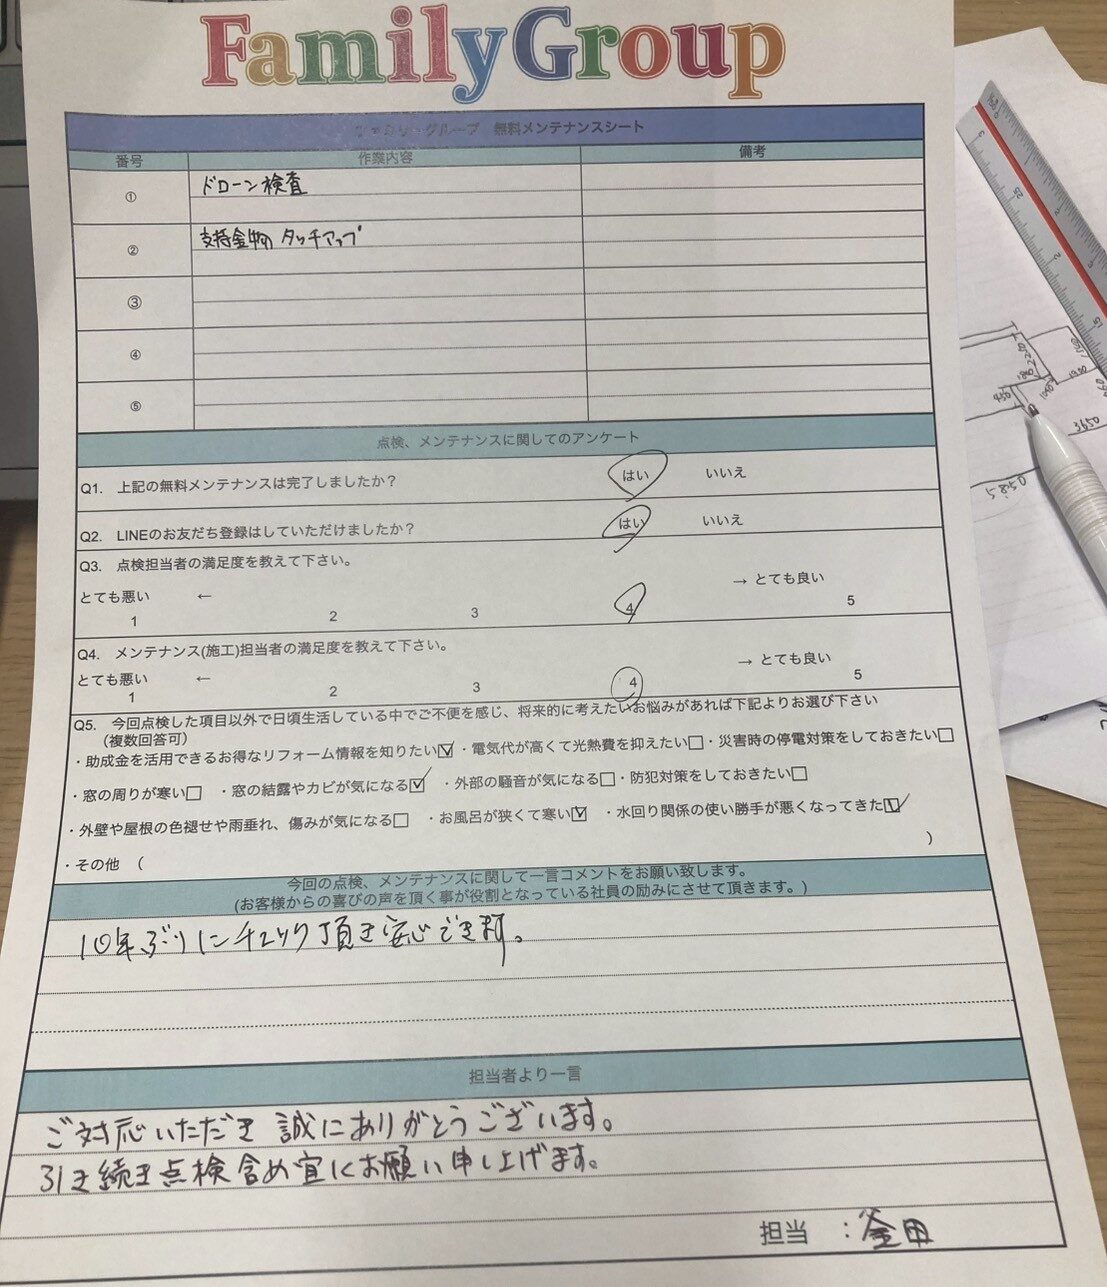 FamilyGroup
ファミリーグループ 無料メンテナンスシート
番号 作業内容 備考
① ドローン検査
② 支持金物のタッチアップ
③
④
⑤
点検、メンテナンスに関してのアンケート
Q1. 上記の無料メンテナンスは完了しましたか？ はい いいえ
Q2. LINEのお友だち登録はしていただけましたか？ はい いいえ
Q3. 点検担当者の満足度を教えて下さい。
とても悪い ← → とても良い
1 2 3 4 5
Q4. メンテナンス(施工)担当者の満足度を教えて下さい。
とても悪い ← → とても良い
1 2 3 4 5
Q5. 今回点検した項目以外で日頃生活している中でご不便を感じ、将来的に考えたいお悩みがあれば下記よりお選び下さい
（複数回答可）
・助成金を活用できるお得なリフォーム情報を知りたい☑ ・電気代が高くて光熱費を抑えたい□ ・災害時の停電対策をしておきたい□
・窓の周りが寒い□ ・窓の結露やカビが気になる☑ ・外部の騒音が気になる□ ・防犯対策をしておきたい□
・外壁や屋根の色褪せや雨垂れ、傷みが気になる□ ・お風呂が狭くて寒い☑ ・水回り関係の使い勝手が悪くなってきた☑
・その他 （ ）
今回の点検、メンテナンスに関して一言コメントをお願い致します。
(お客様からの喜びの声を頂く事が役割となっている社員の励みにさせて頂きます。)
10年ぶりにチェック頂き安心できます。
担当者より一言
ご対応いただき誠にありがとうございます。
引き続き点検含め宜しくお願い申し上げます。
担当 ：釜田
3650
5850